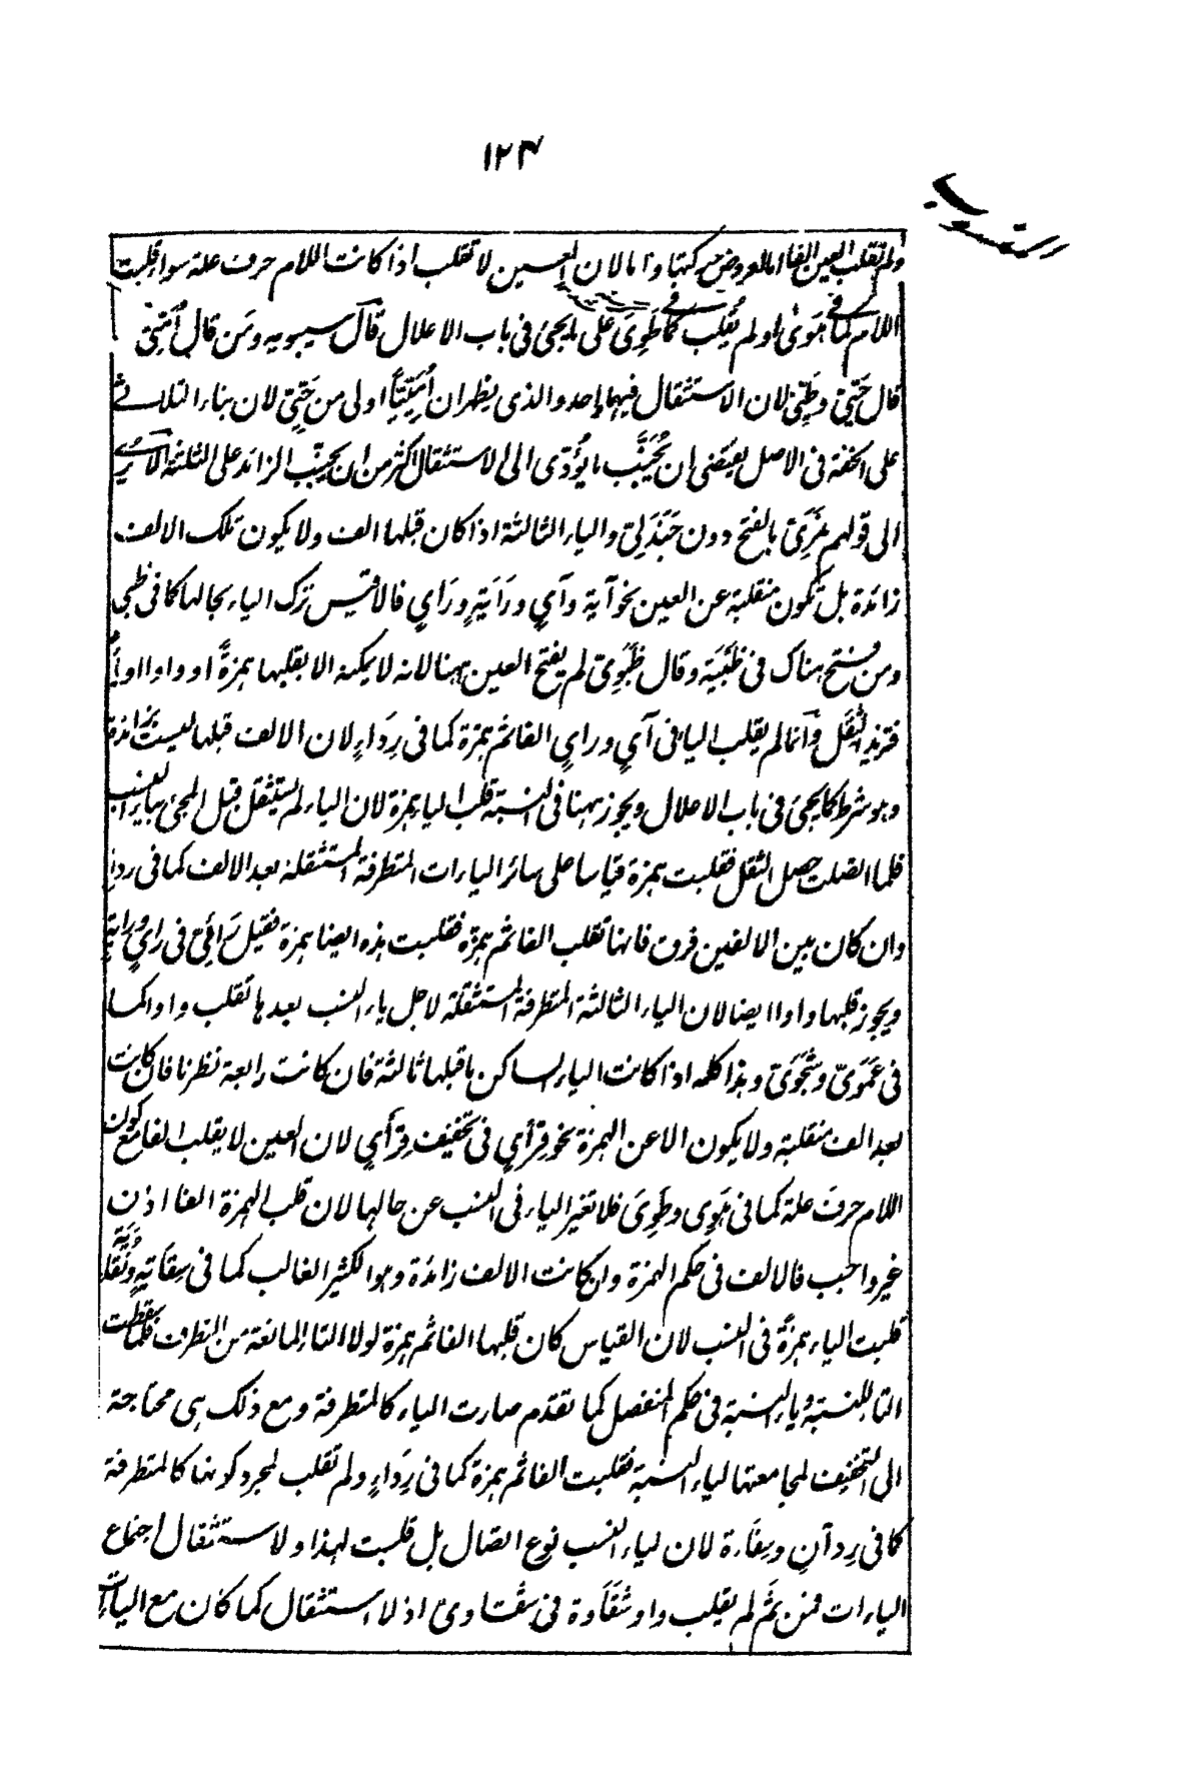 ١٢٤
المنسوب
ولم تقلب العين الفا اما لعروض حركتها واما لان العين لا تقلب اذا كانت اللام حرف علة سواء قلبت
اللام كما فى هوى او لم تقلب كما فى طوى على ما يجئ فى باب الاعلال قال سيبويه ومن قال أميّىّ
قال حيّىّ وطيّىّ لان الاستثقال فيهما واحد والذى يظهر ان أميّيا اولى من حيّىّ لان بناء الثلاثى
على الخفة فى الاصل يقتضى ان يجنب ما يؤدى الى الاستثقال اكثر من ان يجنب الزائد على الثلثة الا ترى
الى قولهم نمرىّ بالفتح دون جندلىّ والياء الثالثة اذا كان قبلها الف ولا يكون تلك الالف
زائدة بل تكون منقلبة عن العين نحو آية وآي وراية وراي فالاقيس ترك الياء بحالها كما فى ظبى
ومن فتح هناك فى ظبية وقال ظبوىّ لم يفتح العين ههنا لانه لا يمكنه الا بقلبها همزةً او واوا او ياء
فتزيد الثقل وانما لم يقلب اليا فى آي وراي الفا ثم همزة كما فى رداء لان الالف قبلها ليست بزائدة
وهو شرط كما يجئ فى باب الاعلال ويجوز ههنا فى النسبة قلب الياء همزة لان الياء لم تستثقل قبل المجئ بياء النسب
فلما اتصلت حصل الثقل فقلبت همزة قياسا على سائر الياءات المتطرفة المستثقلة بعد الالف كما فى رداء
وان كان بين الالفين فرق فانها تقلب الفا ثم همزة فقلبت هذه ايضا همزة فقيل رائىّ فى راي وراية
ويجوز قلبها واوا ايضا لان الياء الثالثة المتطرفة المستثقلة لاجل ياء النسب بعدها تقلب واوا كما
فى عموىّ وشجوىّ وهذا كله اذا كانت الياء الساكن ما قبلها ثالثة فان كانت رابعة نظرنا فان كانت
بعد الف منقلبة ولا يكون الا عن الهمزة نحو قراي فى تخفيف قرأي لان العين لا يقلب الفا مع كون
اللام حرف علة كما فى هوى وطوى فلا تغير الياء فى النسب عن حالها لان قلب الهمزة الفا اذن
غير واجب فالالف فى حكم الهمزة وان كانت الالف زائدة وهو الكثير الغالب كما فى سقاية ونقاية
قلبت الياء همزةً فى النسب لان القياس كان قلبها الفا ثم همزة لولا التاء المانعة من التطرف فلما سقطت
التا للنسبة وياء النسبة فى حكم المنفصل كما تقدم صارت الياء كالمتطرفة ومع ذلك هى محتاجة
الى التخفيف لمجامعتها لياء النسبة فقلبت الفا ثم همزة كما فى رداء ولم تقلب لمجرد كونها كالمتطرفة
كما فى ردآن وسقاءة لان لياء النسب نوع اتصال بل قلبت لهذا ولاستثقال اجتماع
الياءات فمن ثم لم يقلب واو شقاوة فى شقاوىّ اذ لا استثقال كما كان مع الياءات